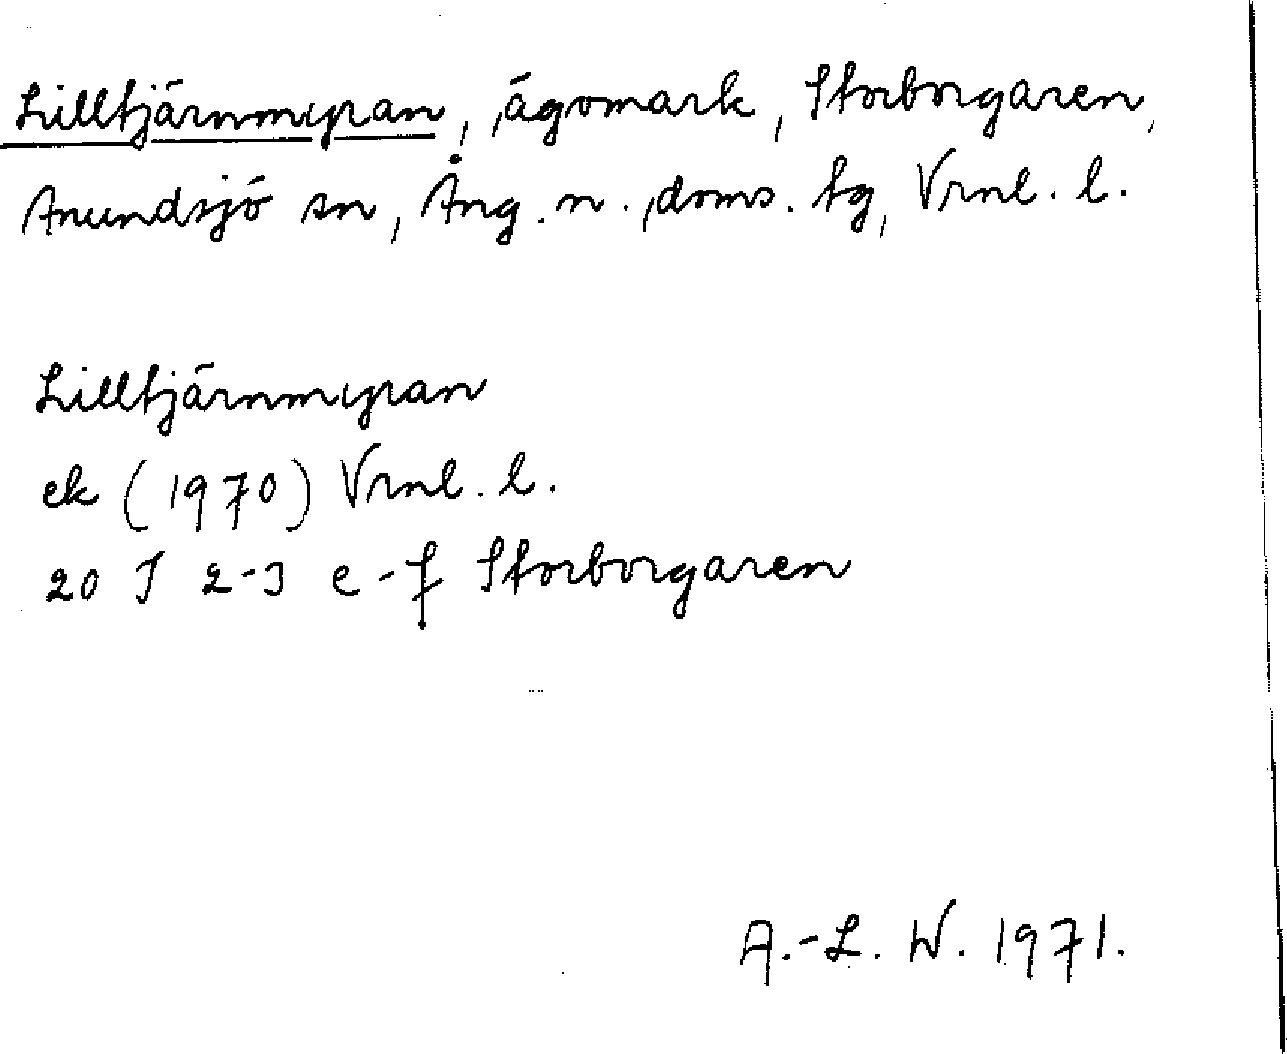 Lilltjärnmyran, ägomark, Storborgaren,
Anundsjö sn, Ång. n. doms. tg, Vrnl. l.
Lilltjärnmyran
ek (1970) Vrnl. l.
20 J 2-3 e-f Storborgaren
A.-L. W. 1971.